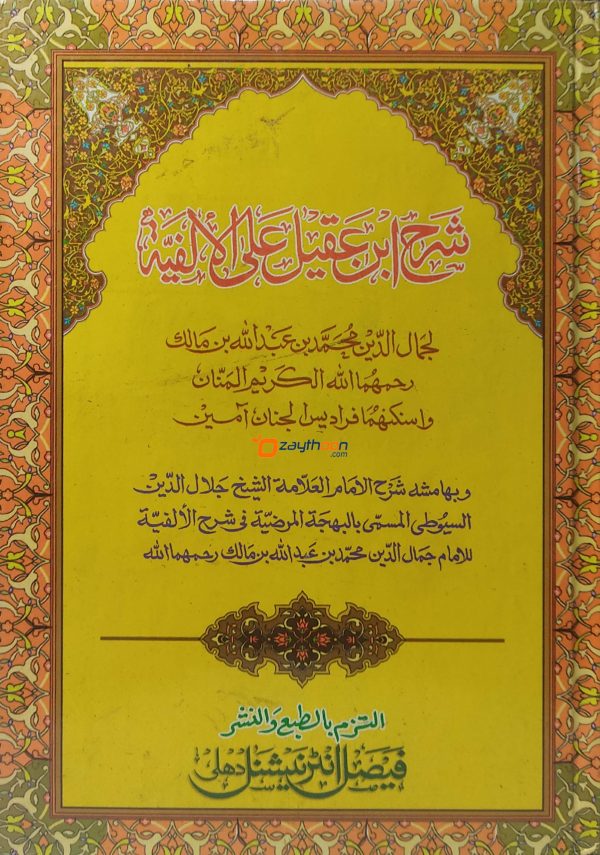 شرح ابن عقيل على الألفية
لجمال الدين محمد بن عبد الله بن مالك
رحمهما الله الكريم المنان
واسكنهما فراديس الجنان آمين
ozaythoon.com
وبهامشه شرح الامام العلامة الشيخ جلال الدين
السيوطى المسمى بالبهجة المرضية فى شرح الألفية
للامام جمال الدين محمد بن عبد الله بن مالك رحمهما الله
التزم بالطبع والنشر
فيصل انٹرنيشنل دهلى